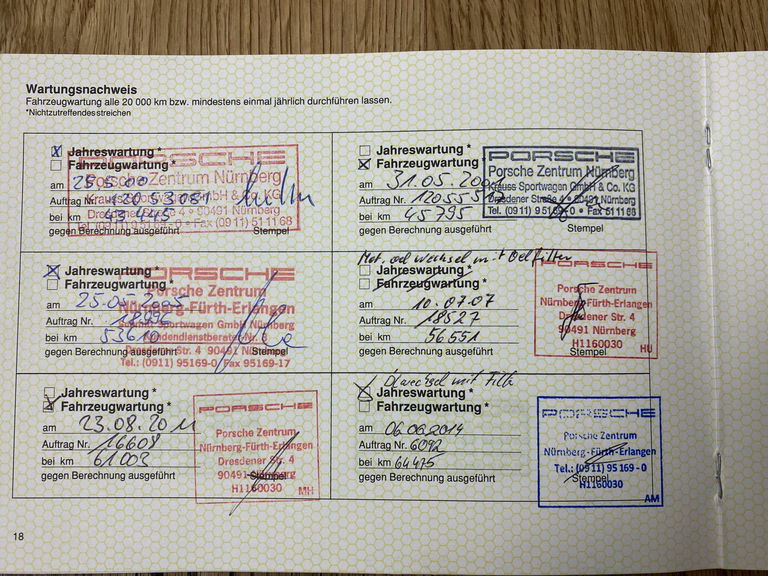 Wartungsnachweis
Fahrzeugwartung alle 20 000 km bzw. mindestens einmal jährlich durchführen lassen.
*Nichtzutreffendes streichen
X Jahreswartung *
Fahrzeugwartung *
am 25.5.00
Auftrag Nr.
bei km 43 445
gegen Berechnung ausgeführt Stempel
PORSCHE
Porsche Zentrum Nürnberg
Krauss Sportwagen GmbH & Co. KG
Dresdener Straße 4 • 90491 Nürnberg
Tel. (09 11) 9 51 69-0 • Fax 51 11 68
Jahreswartung *
X Fahrzeugwartung *
am 31.05.2001
Auftrag Nr.
bei km 45795
gegen Berechnung ausgeführt Stempel
PORSCHE
Porsche Zentrum Nürnberg
Krauss Sportwagen GmbH & Co. KG
Dresdener Straße 4 • 90491 Nürnberg
Tel. (09 11) 9 51 69-0 • Fax 51 11 68
X Jahreswartung *
Fahrzeugwartung *
am 25.05.2005
Auftrag Nr.
bei km 53610
gegen Berechnung ausgeführt Stempel
PORSCHE
Porsche Zentrum
Nürnberg-Fürth-Erlangen
Sportwagen GmbH Nürnberg
Kundendienstberater Nr.
Dresdener Str. 4 90491 Nürnberg
Tel.: (0911) 95169-0 Fax 95169-17
Mot. oel Wechsel mit Oelfilter
Jahreswartung *
Fahrzeugwartung *
am 10.07.07
Auftrag Nr. 18527
bei km 56551
gegen Berechnung ausgeführt Stempel
PORSCHE
Porsche Zentrum
Nürnberg-Fürth-Erlangen
Dresdener Str. 4
90491 Nürnberg
H1160030
HU
Jahreswartung *
Fahrzeugwartung *
am 23.08.2011
Auftrag Nr. 16608
bei km 61003
gegen Berechnung ausgeführt Stempel
PORSCHE
Porsche Zentrum
Nürnberg-Fürth-Erlangen
Dresdener Str. 4
90491 Nürnberg
H1160030
MH
Ölwechsel mit Filter
Jahreswartung *
Fahrzeugwartung *
am 06.06.2014
Auftrag Nr. 6092
bei km 64475
gegen Berechnung ausgeführt Stempel
PORSCHE
Porsche Zentrum
Nürnberg-Fürth-Erlangen
Tel.: (09 11) 95 169 - 0
H1160030
AM
18